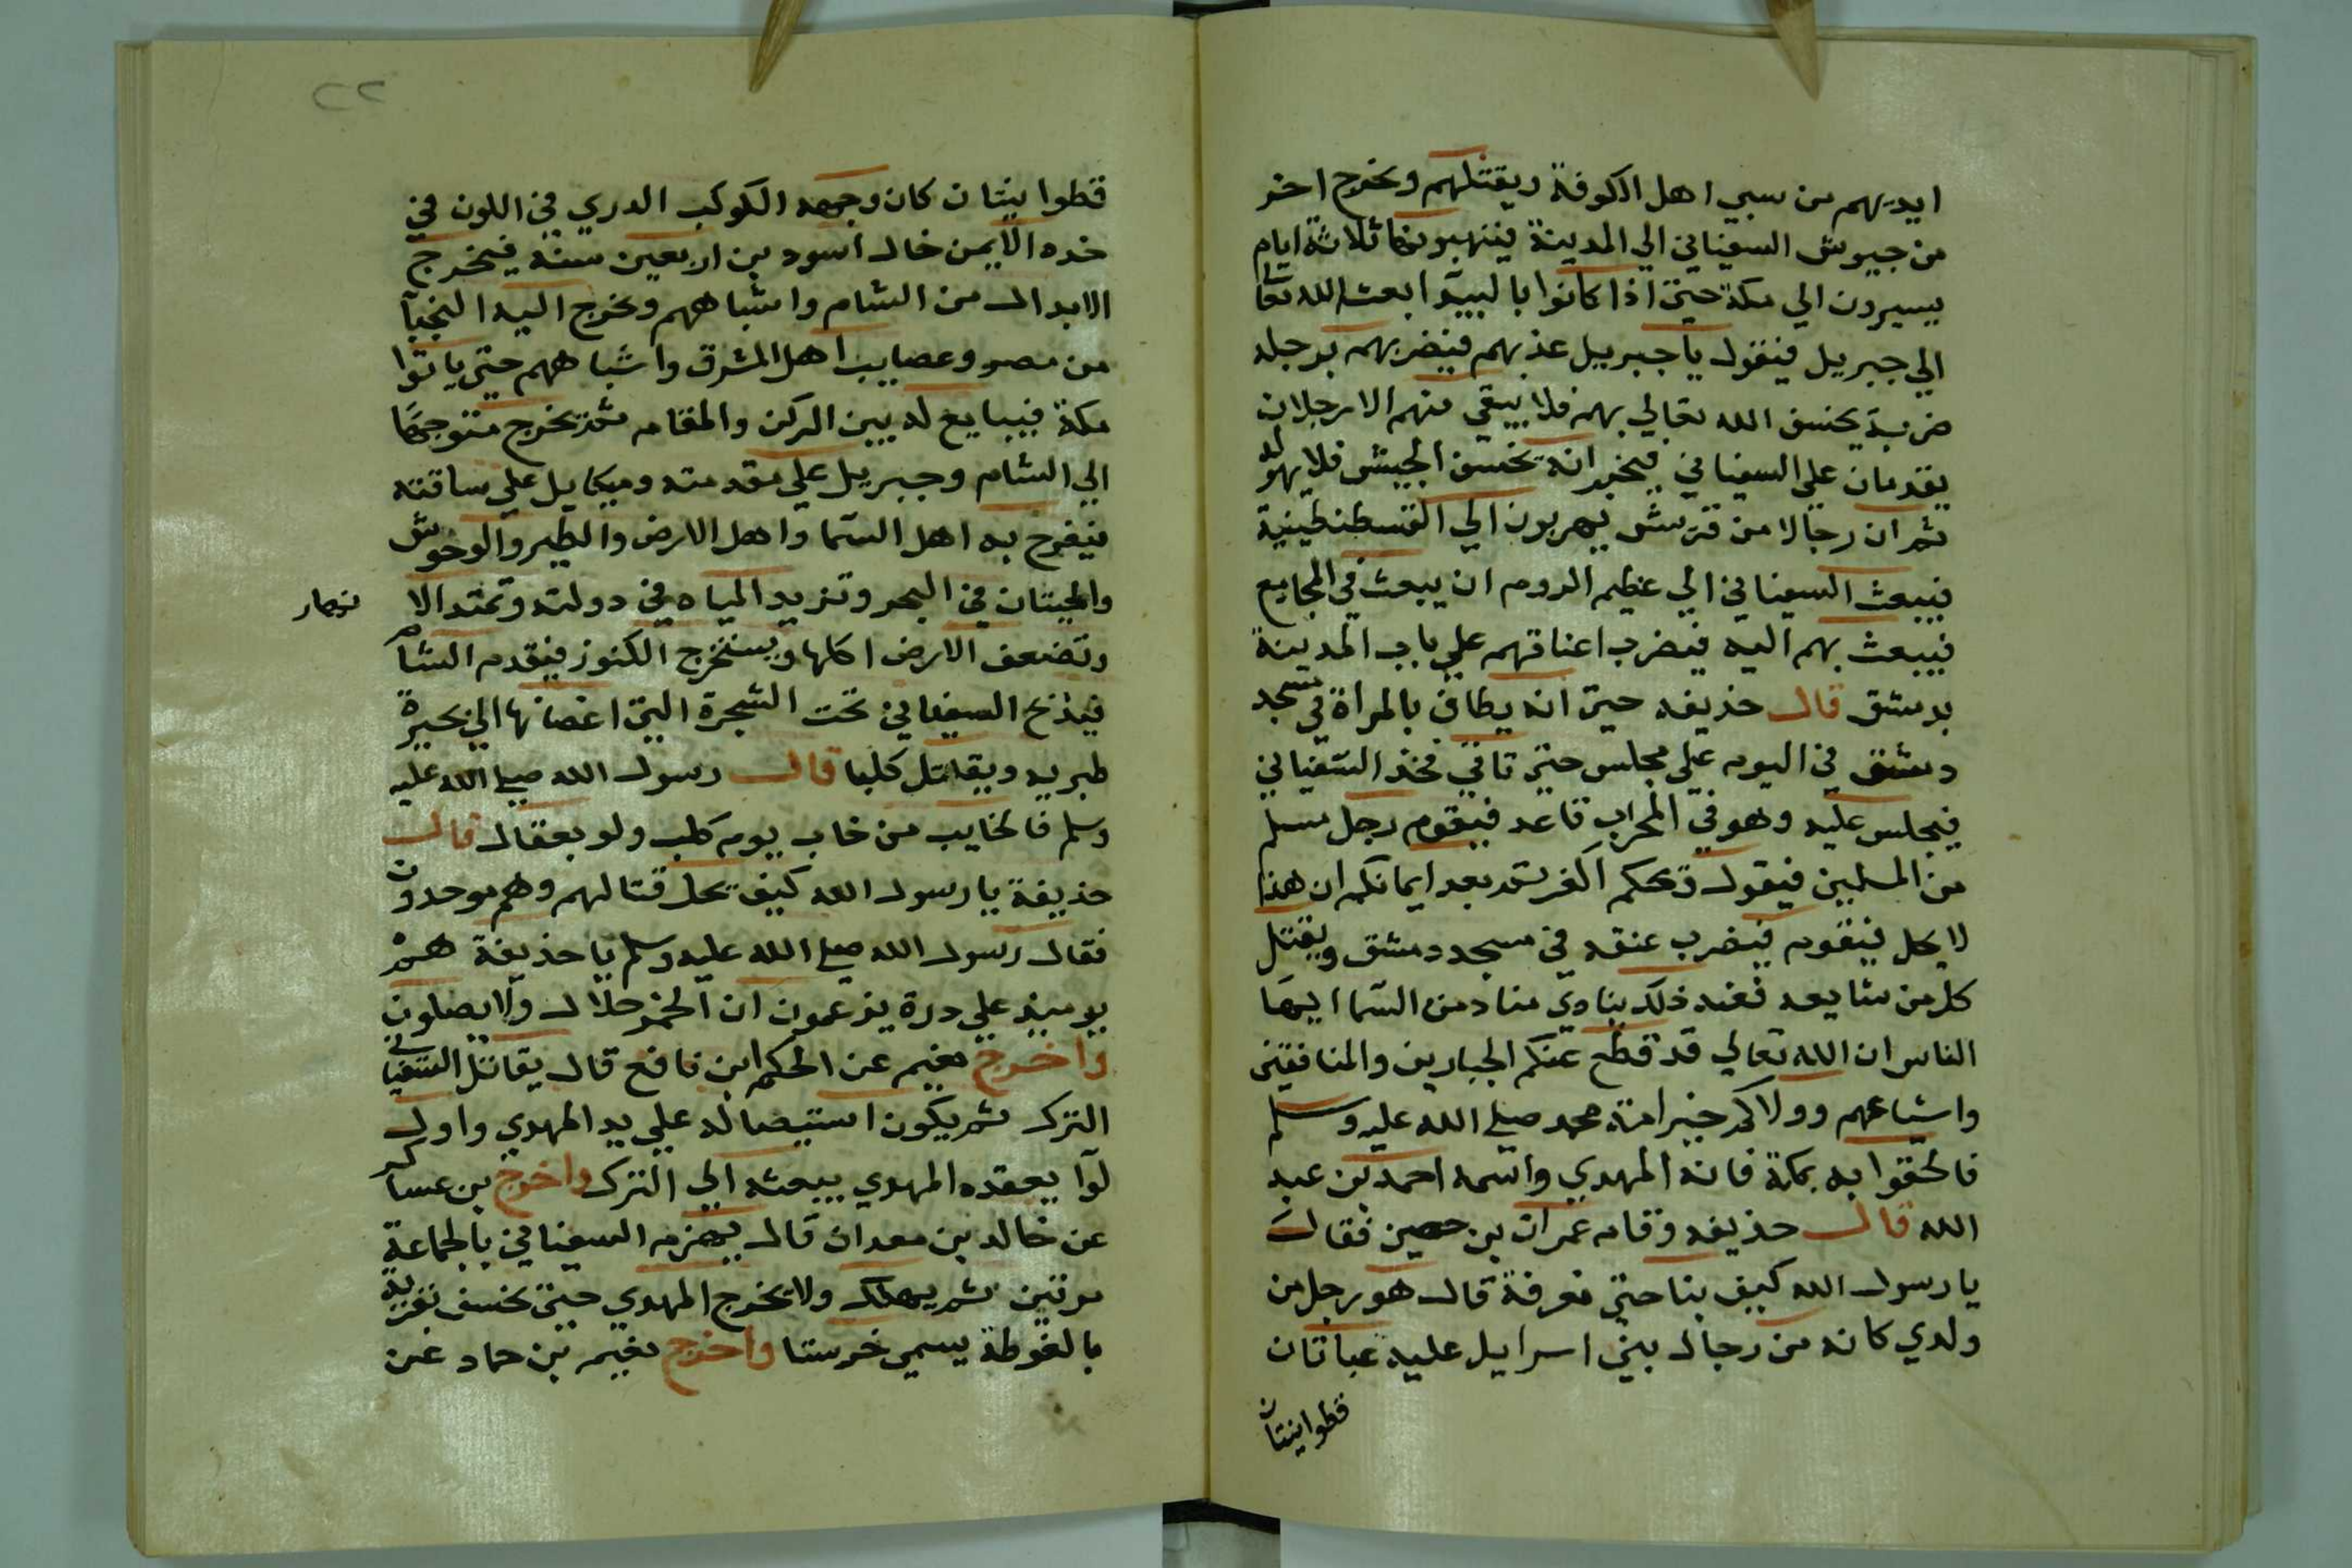 ايديهم من سبي اهل الكوفة ويقتلهم ويخرج اخر
من جيوش السفياني الي المدينة فينهبونها ثلاثة ايام
يسيرون الي مكة حتي اذا كانوا بالبيدا بعث الله تعا
الي جبريل فيقول يا جبريل عذبهم فيضربهم برجله
ضربة يخسف الله تعالي بهم فلا يبقي منهم الا رجلان
يقدمان علي السفياني فيخبرانه بخسف الجيش فلا يهوله
ثم ان رجالا من قريش يهربون الي القسطنطينية
فيبعث السفياني الي عظيم الروم ان يبعث في المجامع
فيبعث بهم اليه فيضرب اعناقهم علي باب المدينة
بدمشق قال حذيفه حتي انه يطاف بالمراة في مسجد
دمشق في اليوم علي مجلس حتي تاتي فخذ السفياني
فيجلس عليه وهو في المحراب قاعد فيقوم رجل مسلم
من المسلمين فيقول ويحكم اكفرتم بعد ايمانكم ان هذا
لا يحل فيقوم فيضرب عنقه في مسجد دمشق ويقتل
كل من شايعه فعند ذلك ينادي مناد من السما ايها
الناس ان الله تعالي قد قطع عنكم الجبارين والمنافقين
واشياعهم وولاكم خير امة محمد صلي الله عليه وسلم
فالحقوا به بمكة فانه المهدي واسمه احمد بن عبد
الله قال حذيفه وقام عمران بن حصين فقال
يا رسول الله كيف بنا حتي نعرفة قال هو رجل من
ولدي كانه من رجال بني اسرايل عليه عباتان
قطوانيتان
٢٢
قطوانيتان كان وجهه الكوكب الدري في اللون في
خده الايمن خال اسود بن اربعين سنه فيخرج
الابدال من الشام واشباههم ويخرج اليه النجبآ
من مصر وعصايب اهل المشرق واشباههم حتي ياتوا
مكة فيبايع له بين الركن والمقام ثم يخرج متوجها
الي الشام وجبريل علي مقدمته وميكايل علي ساقته
فيفرح به اهل السما واهل الارض والطير والوحوش
والحيتان في البحر وتزيد المياه في دولته وتمتد الا نهار
وتضعف الارض اكلها ويستخرج الكنوز فيقدم الشام
فيذبح السفياني تحت الشجرة التي اغصانها الي بحيرة
طبريه ويقاتل كلبا قال رسول الله صلي الله عليه
وسلم فالخايب من خاب يوم كلب ولو بعقال قال
حذيفة يا رسول الله كيف يحل قتالهم وهم موحدون
فقال رسول الله صلي الله عليه وسلم يا حذيفة هم
يوميذ علي ردة يزعمون ان الخمر حلال ولا يصلون
واخرج نعيم عن الحكم ابن نافع قال يقاتل السفياني
الترك ثم يكون استيصاله علي يد المهدي واول
لوآ يعقده المهدي يبعثه الي الترك واخرج بن عساكر
عن خالد بن معدان قال يهزم السفياني بالجماعة
مرتين ثم يهلك ولا يخرج المهدي حتي يخسف بقرية
بالغوطة يسمي خرستا واخرج نعيم بن حماد عن